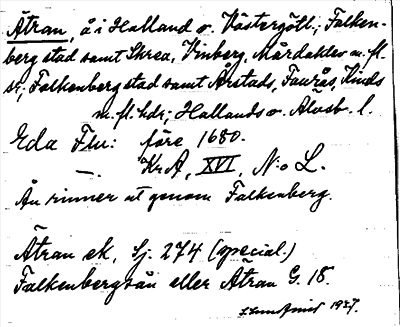 Ätran, å i Halland o. Västergötl.; Falken-
berg stad samt Skrea, Vinberg, Mårdaklev m. fl.
sr; Falkenberg stad samt Årstads, Faurås, Kinds
m. fl. hdr; Hallands o. Älvsb. l.
Eda Flu: före 1680.
— . KrA, XVI, N:o L.
Ån rinner ut genom Falkenberg.
Ätran ek, Sj. 274 (special.)
Falkenbergsån eller Ätran G. 18.
1937.